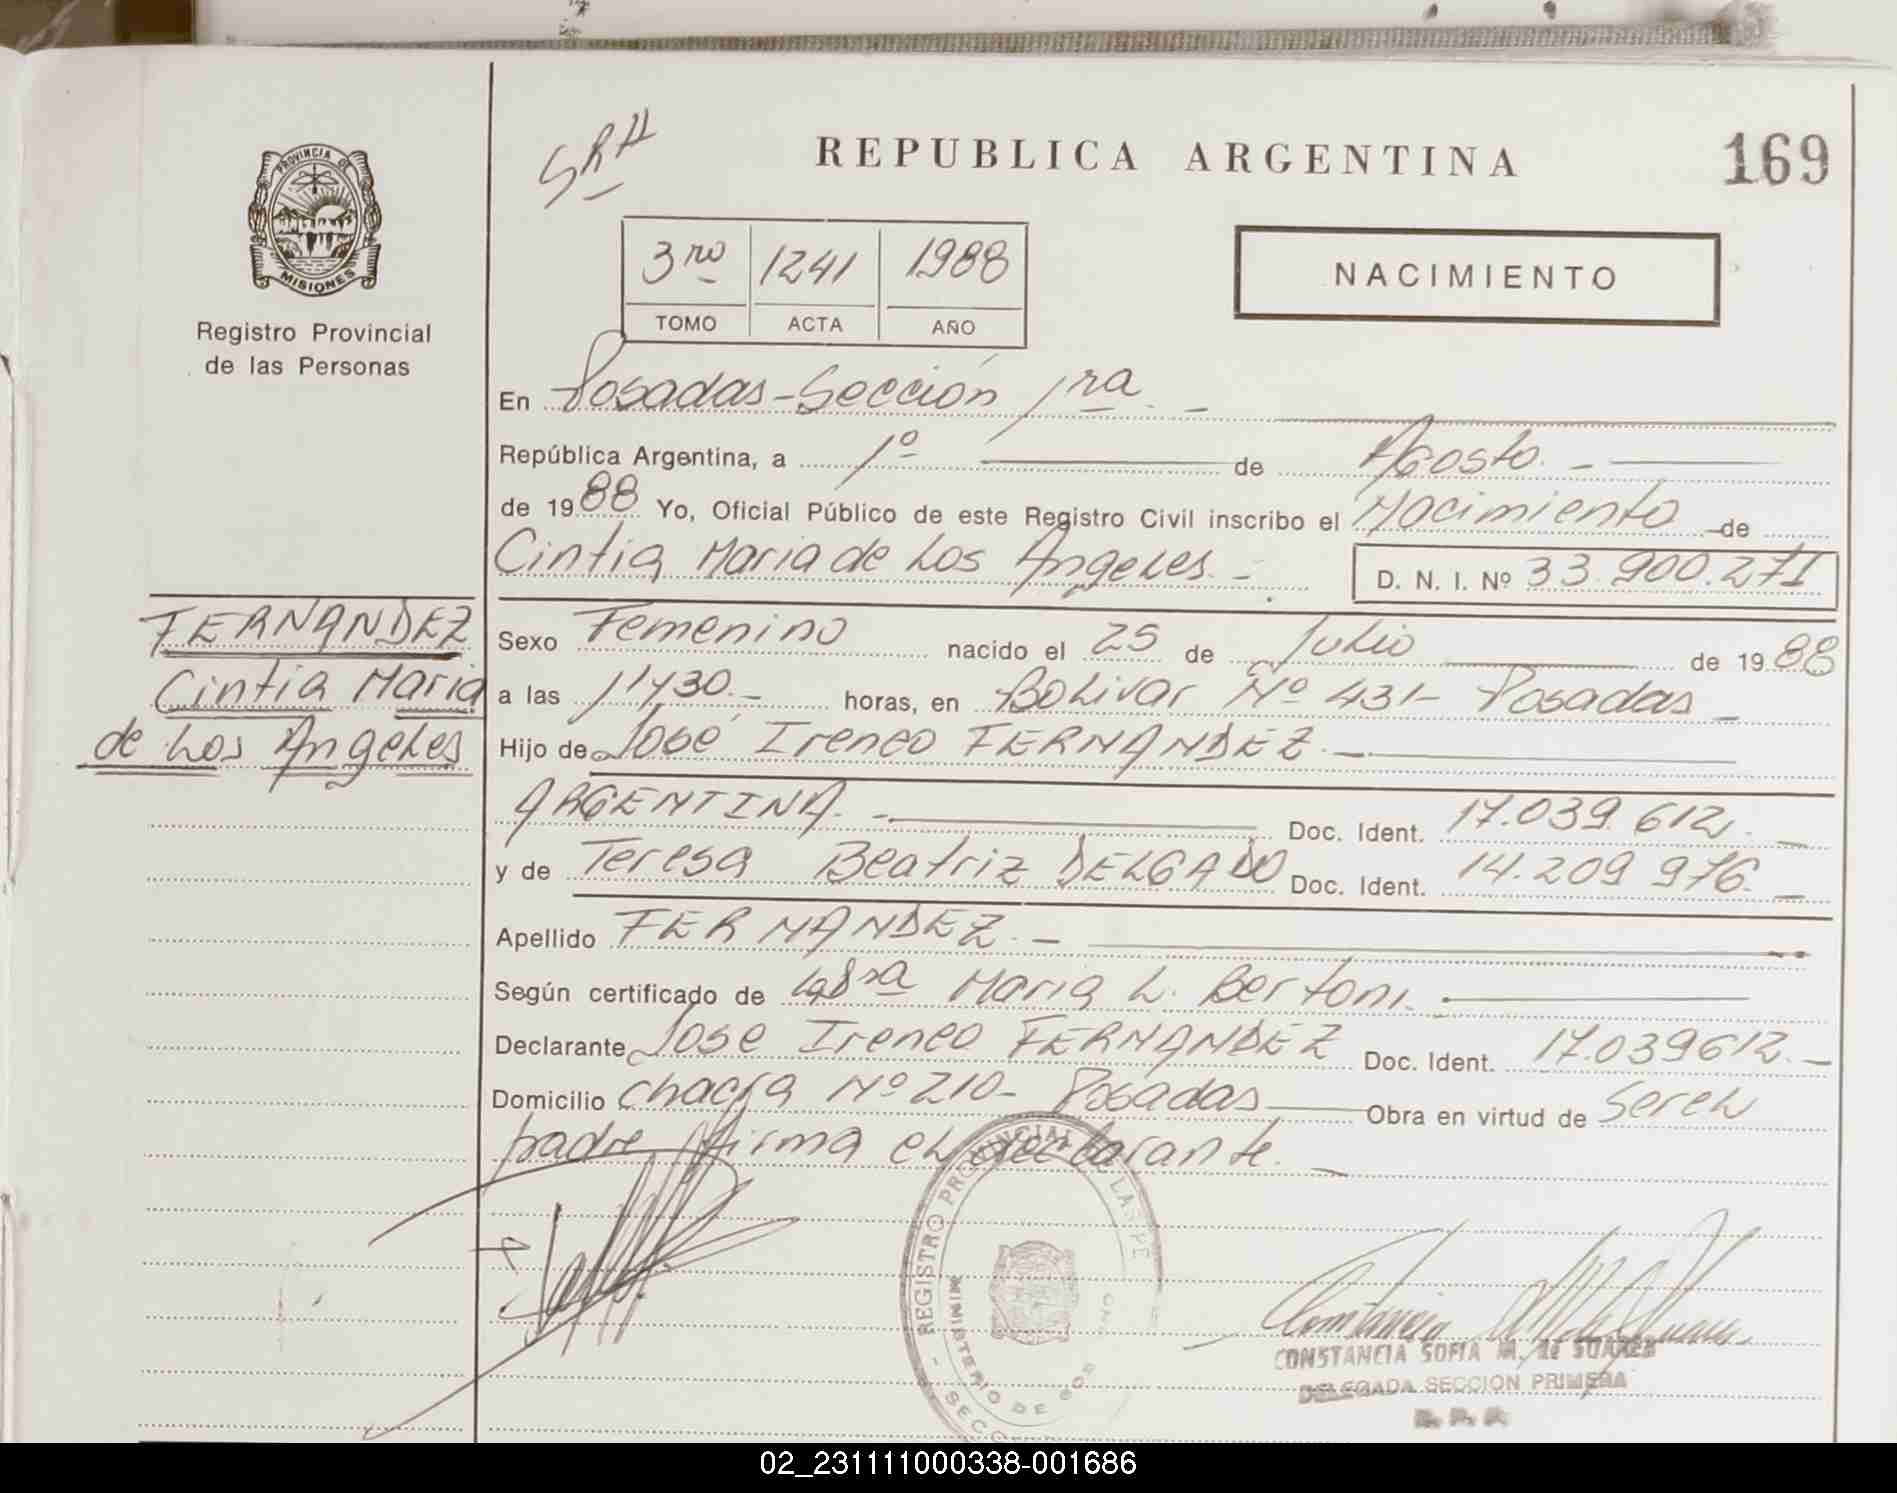 SRH
REPUBLICA ARGENTINA
169
PROVINCIA DE
MISIONES
Registro Provincial
de las Personas
3ro 1241 1988
TOMO ACTA AÑO
NACIMIENTO
En Posadas-Sección 1ra. -
República Argentina, a 1º de Agosto. -
de 1988 Yo, Oficial Público de este Registro Civil inscribo el Nacimiento de
Cintia Maria de Los Angeles. - D. N. I. Nº 33.900.271
FERNANDEZ
Cintia Maria
de Los Angeles
Sexo Femenino nacido el 25 de Julio de 1988
a las 11y30.- horas, en Bolivar Nº 431- Posadas -
Hijo de José Ireneo FERNANDEZ. -
ARGENTINA. - Doc. Ident. 17.039.612. -
y de Teresa Beatriz DELGADO Doc. Ident. 14.209.976. -
Apellido FERNANDEZ. -
Según certificado de la Dra Maria L. Bertoni.
Declarante Jose Ireneo FERNANDEZ Doc. Ident. 17.039612. -
Domicilio chacra Nº 210- Posadas Obra en virtud de Ser el
padre firma el declarante. -
REGISTRO PROVINCIAL LAS PE
MINISTERIO DE GOB
SECC
CONSTANCIA SOFIA M. de SUAREZ
DELEGADA SECCION PRIMERA
R. P. P.
02_231111000338-001686